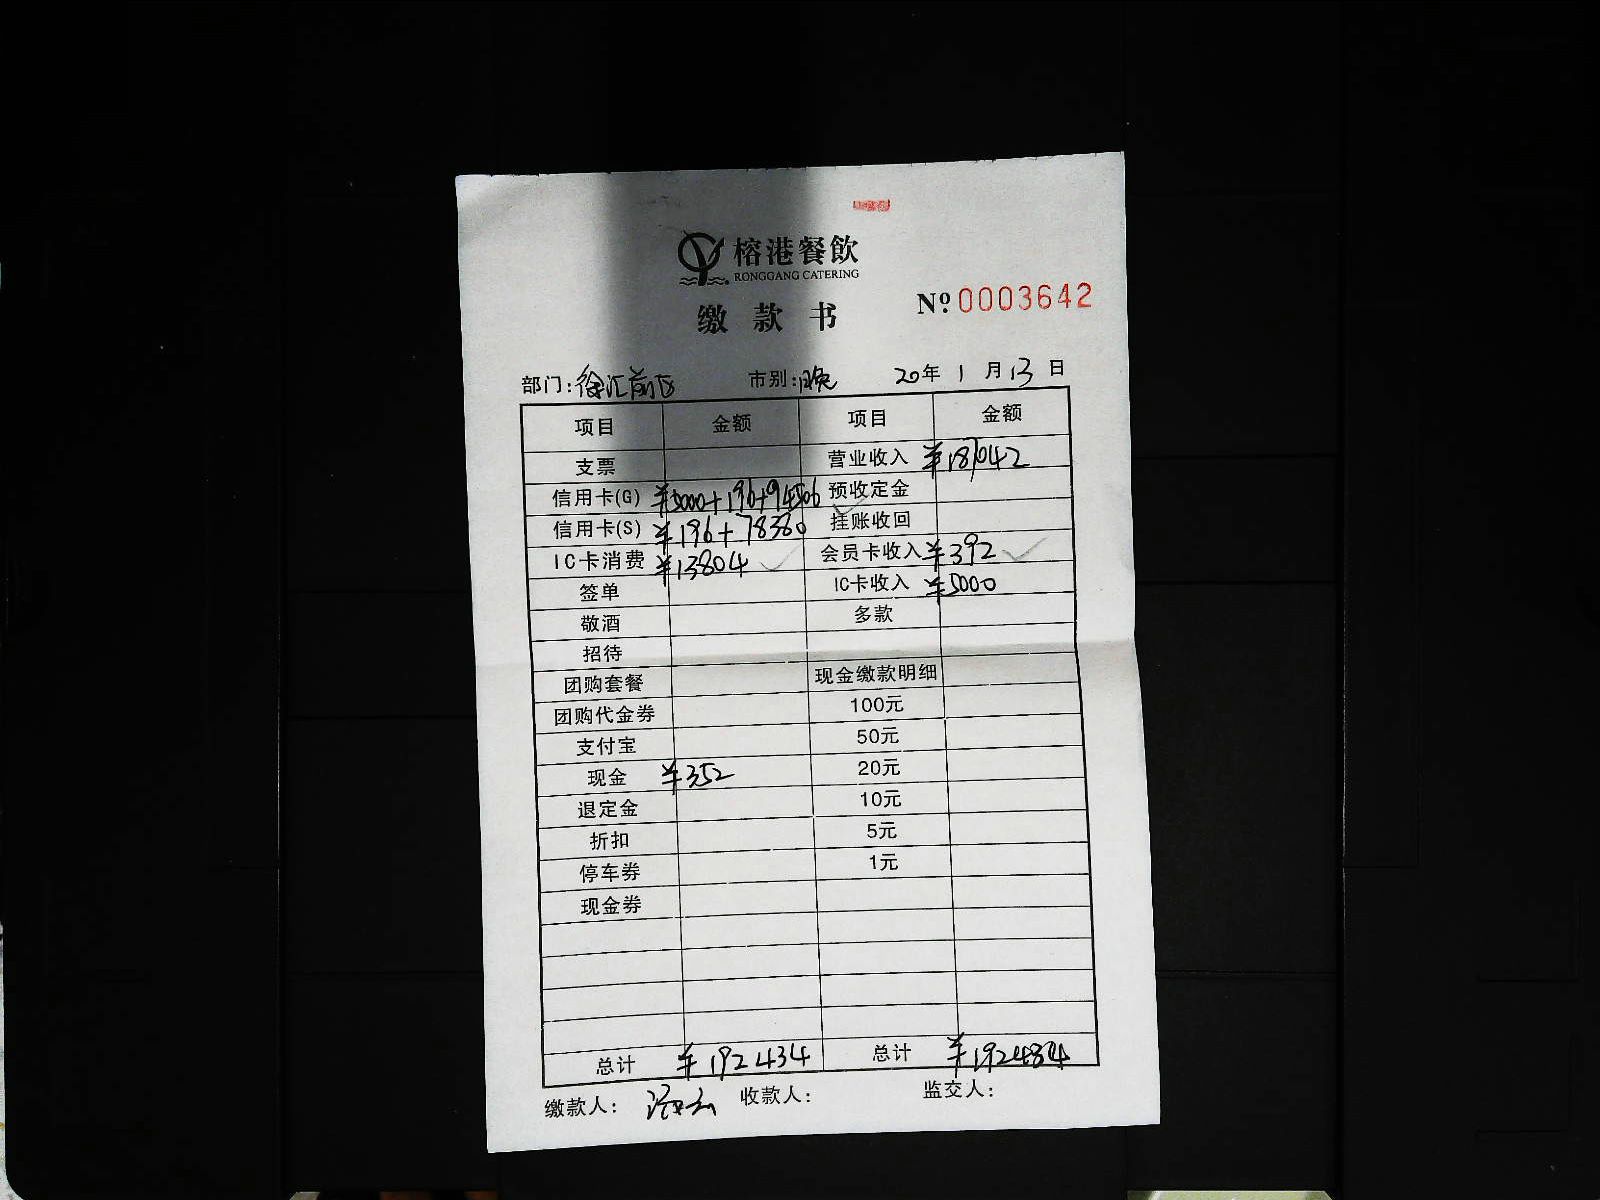 榕港餐飲
RONGGANG CATERING
缴款书
Nº.0003642
部门:徐汇前区 市别:晚 20年 1月13日
项目 金额 项目 金额
支票 营业收入 ¥187042
信用卡(G) ¥5000+196+94506 预收定金
信用卡(S) ¥196+78380 挂账收回
IC卡消费 ¥13804 会员卡收入 ¥392
签单 IC卡收入 ¥5000
敬酒 多款
招待
团购套餐 现金缴款明细
团购代金券 100元
支付宝 50元
现金 ¥352 20元
退定金 10元
折扣 5元
停车券 1元
现金券
总计 ¥192434 总计 ¥192434
缴款人: 收款人: 监交人: